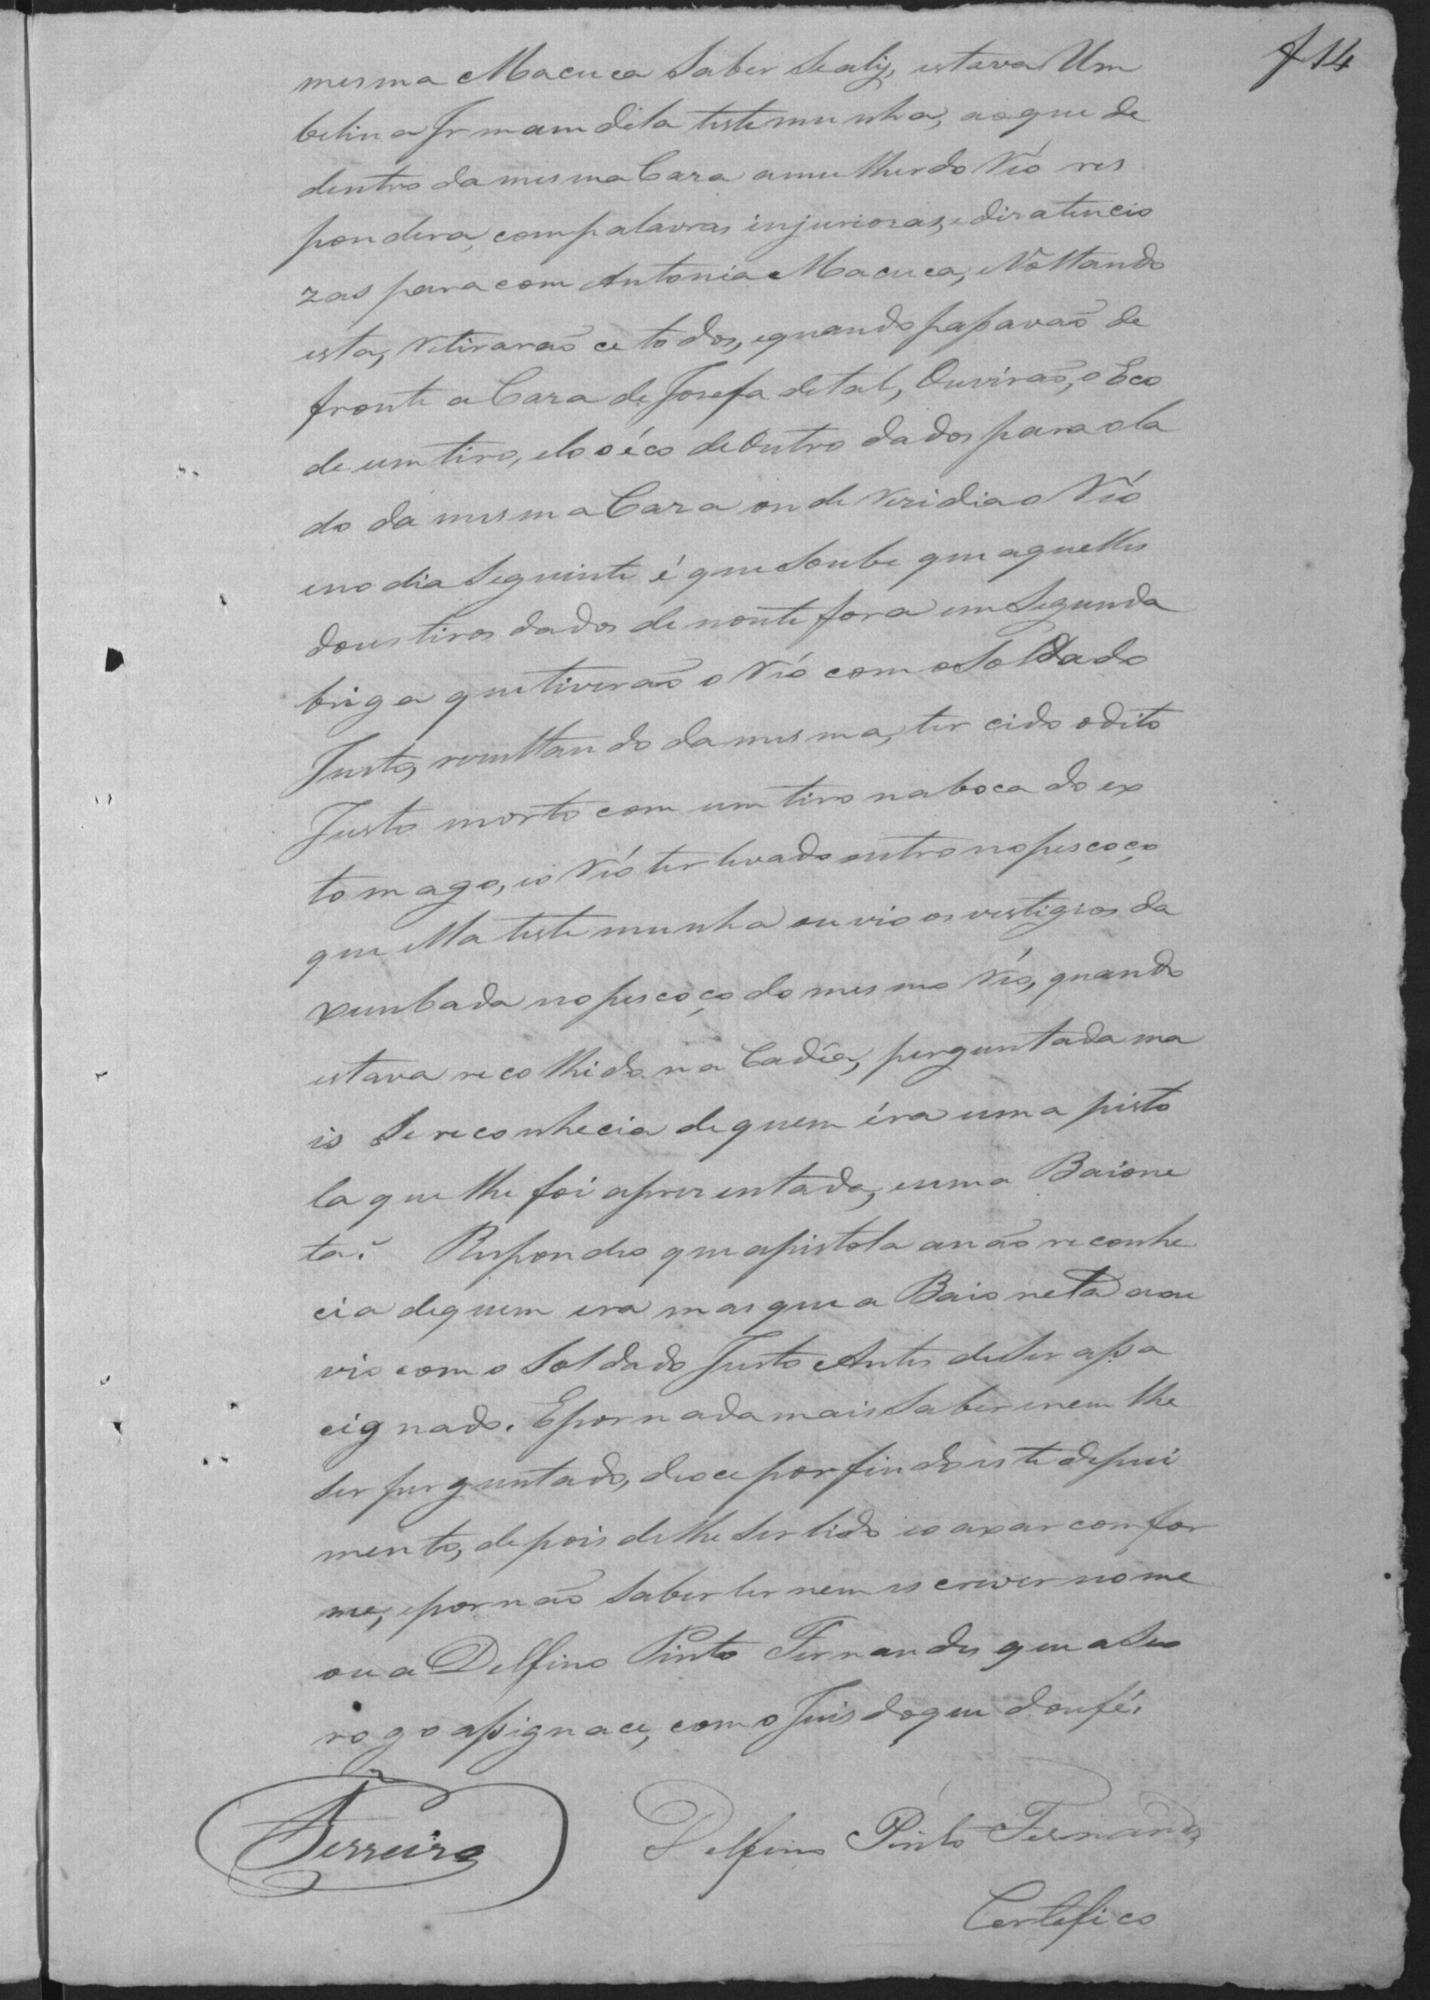 f 14
mesma Macuca saber se aly, estava Um
belina Irmam dila testemunha, ao que de
dentro da mesma Caza a mulher do Réo res
pondera, com palavras injuriozas, e diratencio
zas para com Antonia Macuca, e Voltando
esta, retirarão ce todos, e quando passavão de
fronte a Caza de Josefa de tal, Ouvirão, o Eco
de um tiro, e logo o éco de Outro dados para o la
do da mesma Caza onde rezidia o Réo
e no dia seguinte é que soube que aquelles
dous tiros dados de noute fora em Segunda
briga que tiverão o Réo com o Soldado
Justo, rezultando da mesma, ter cido o dito
Justo morto com um tiro na boca do ex
tomago, e o Réo ter levado outro no pescoço
que ella testemunha ou vio os vestigios da
xumbada no pescoço do mesmo Réo, quando
estava recolhido na Cadêa, perguntada ma
is se reconhecia de quem éra uma pisto
la que lhe foi aprezentada, e uma Baione
ta? Respondeo que a pistola a não reconhe
cia de quem era mas que a Baioneta a ou
vio com o Soldado Justo Antes de Ser assa
cignado. E por nada mais saber e nem lhe
ser perguntado, deo ce por findo este depui
mento, depois de lhe ser lido e o axar confor
me, e por não saber ler nem escrever nome
ou a Delfino Pinto Fernandes que a Seo
rogo assignace, com o Juis do que dou fé.
Ferreira Delfino Pinto Fernandes
Certefico